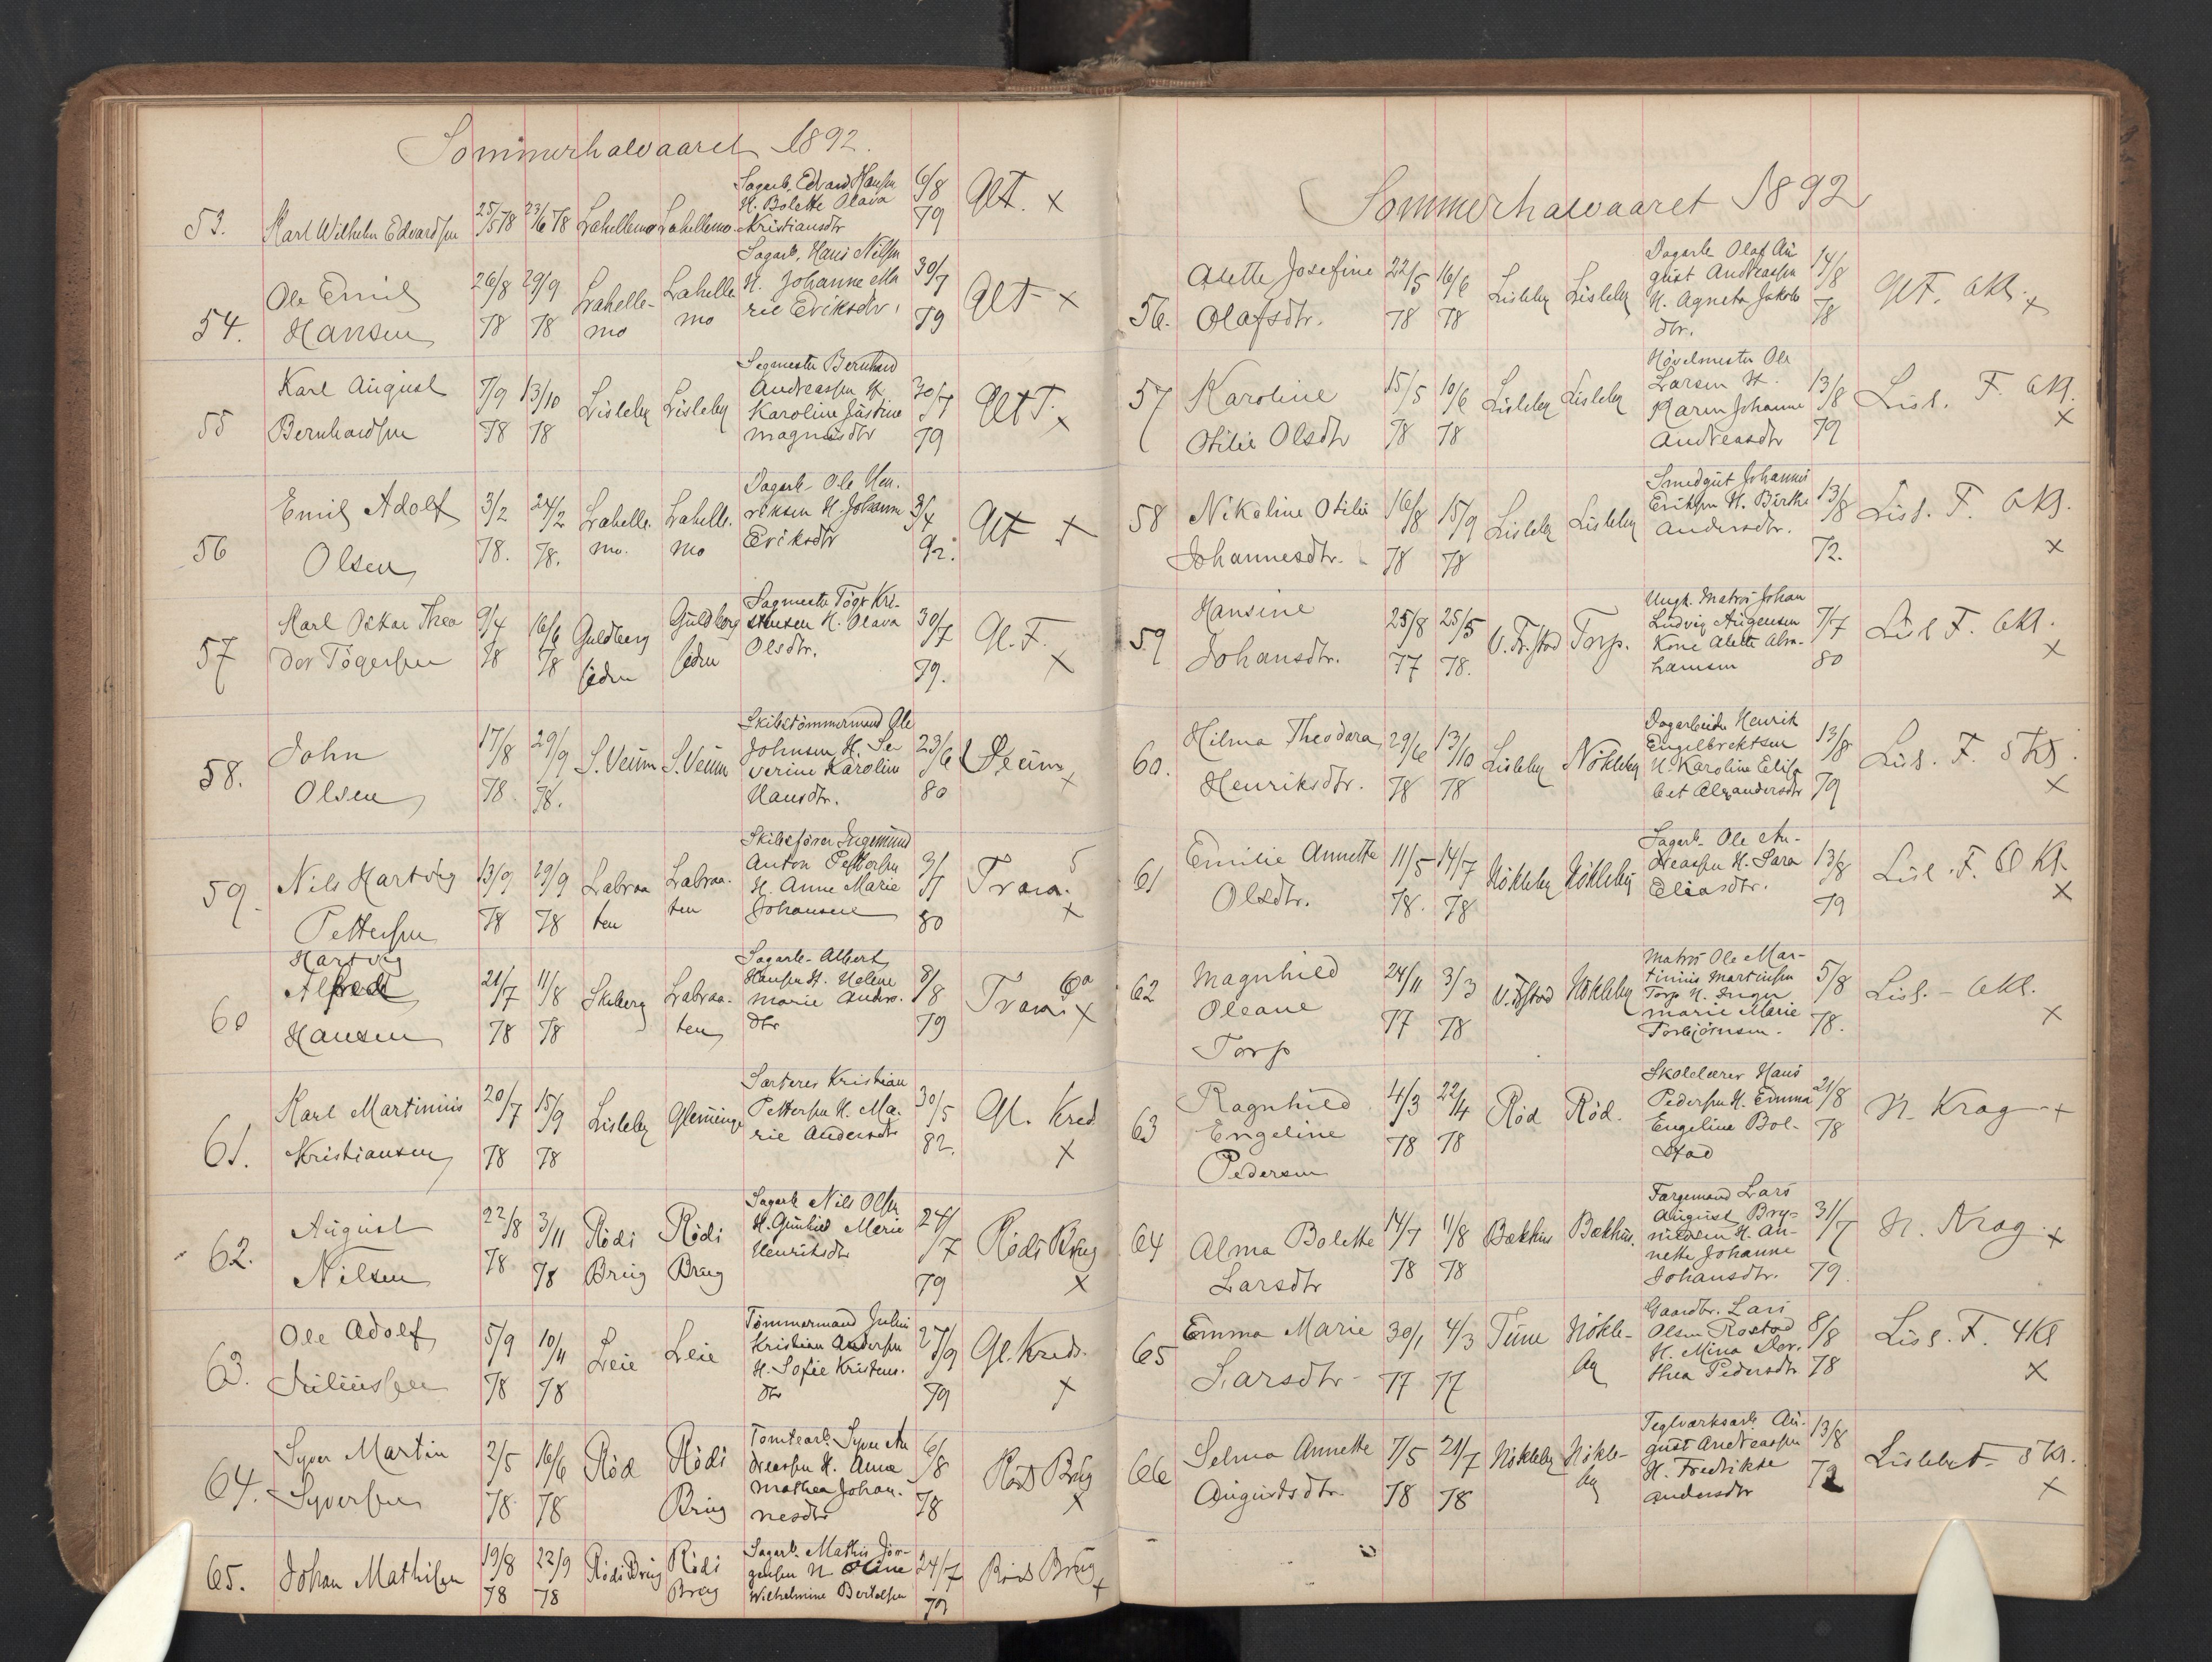 Sommerhalvaaret 1892.
53. Karl Wilhelm Edvardsen 25/5 78 23/6 78 Lahellemo Lahellemo Sagarb. Edvard Hansen H. Bolette Olava Kristiansdtr 6/8 79 Glt. x
54. Ole Emil Hansen 26/8 78 29/9 78 Lahelle-mo Lahelle mo Sagarb. Hans Nilsen H. Johanne Marie Eriksdtr. 30/7 79 Glt x
55 Karl August Bernhardsen 7/9 78 13/10 78 Lisleby Lisleby Sagmester Bernhard Andreassen H. Karoline Justine Magnusdtr 30/7 79 Glt F. x
56 Emil Adolf Olsen 3/2 78. 24/2 78. Lahelle. mo. Lahelle. mo Dagarb. Ole Hen-riksen H. Johanne Eriksdtr 3/4 92. Glt x
57 Karl Oskar Theodor Tögersen 9/4 78 16/6 78 Guldberg siden Guldberg siden Sagmester Töger Kri-stensen H. Olava Olsdtr. 30/7 79. Gl. F. x
58. John Olsen 17/8 78. 29/9 78. S. Veum S. Veum Skibstömmermand Ole Johnsen H. Severine Karoline Hansdtr. 23/6 80 Veum x
59. Nils Hartvig Pettersen 13/9 78 29/9 78 Labraa ten Labraa-ten Skibsförer Ingemund Anton Pettersen H. Anne Marie Johansen 80 Trara. 5 x
60 Hartvig Alfred Hansen 21/7 78 11/8 78 Skiberg Labraa-ten Sagarb. Albert Hansen H. Helene Marie Anders-dtr 8/8 79 Trara 6a x
61. Karl Martinius Kristiansen 20/7 78 15/9 78 Lisleby Glemminge Sorterer Kristian Pettersen H. Marie Andersdtr 30/5 82. Gl. Kred x
62. August Nilsen 22/8 78 3/11 78 Rödi Brug Rödi Brug Sagarb Nils Olsen H. Gunhild Marie Henriksdtr 24/7 79 Röds Brug x
63. Ole Adolf Juliussen 5/9 78 10/11 78 Leie Leie Tömmermand Julius Kristian Andersen H. Sofie Kristens-dtr 27/9 79 Gl. Kreds. x
64. Syver Martin Syversen 2/5 78 16/6 78 Röd Rödi Brug Tomtearb. Syver Andreassen H. Anna Mathea Johan-nesdtr 6/8 78 Röds Brug x
65. Johan Mathisen 19/8 78 22/9 78 Rödi Brug Rödi Brug Sagarb. Mathis Jör-gensen H. Oline Wilhelmine Bertelsen 24/7 79 Röds Brug x
Sommerhalvaaret 1892
56. Alette Josefine Olafsdtr. 22/5 78 16/6 78 Lisleby Lisleby Dagarb Olaf August Andreassen H. Agneta Jakobsdtr. 14/8 78 Glt. 6kl. x
57 Karoline Otilie Olsdtr 15/5 78 10/6 78 Lisleby Lisleby Hövelmester Ole Larsen H. Karen Johanne Andreasdtr 13/8 79 Lisl. F. 6kl. x
58 Nikoline Otilie Johannesdtr. 16/8 78 15/9 78 Lisleby Lisleby Smedgut Johannis Eriksen H. Birthe Andersdtr. 13/8 72. Lisl. F. 6kl. x
59 Hansine Johansdtr. 25/8 77 25/5 78. V. Fr.stad Torp. Ungk. Matros Johan Ludvig Augensen Kone Alette Abra-hamsen 7/7 80 Lisl F. 6kl. x
60. Hilma Theodora Henriksdtr. 29/6 78 13/10 78 Lisleby Nökleby Dagarbeider Henrik Engelbrektsen H. Karoline Elisabet Alexandersdtr 13/8 79 Lisl. F. 5kl. x
61 Emilie Annette Olsdtr. 11/5 78. 14/7 78 Nökleby Nökleby Sagarb. Ole Andreassen H. Sara Eliasdtr. 13/8 79 Lisl. F. 6 kl. x
62 Magnhild Oleane Torp 24/11 77 3/3 78 V. Fr.stad Nökleby Matros Ole Mar-tinius Martinsen Torp H. Inger Marie Marie Torbjörnsen. 5/8 78. Lisl. - 6kl. x
63 Ragnhild Engeline Pedersen 4/3 78 22/4 78 Röd Röd. Skolelærer Hans Pedersen H. Emma Engeline Bol-stad 21/8 78 N. Krog x
64 Alma Bolette Larsdtr 14/7 78 11/8 78 Bækhus Bækhus. Færgemand Lars August Bry-nildsen H. Annette Johanne Johansdtr. 31/7 79. N. Krog. x
65 Emma Marie Larsdtr 30/1 77 4/3 77 Tune Nökle-by Gaardbr. Lars Olsen Rostad H. Mina Dorthea Pedersdtr 8/8 78 Lisl. F. 4kl x
66 Selma Annette Augustsdtr. 7/5 78 21/7 78 Nökleby Nökle-by Teglværksarb. August Andreassen H. Fredrikke Andersdtr 13/8 Lisleby F 5kl. x